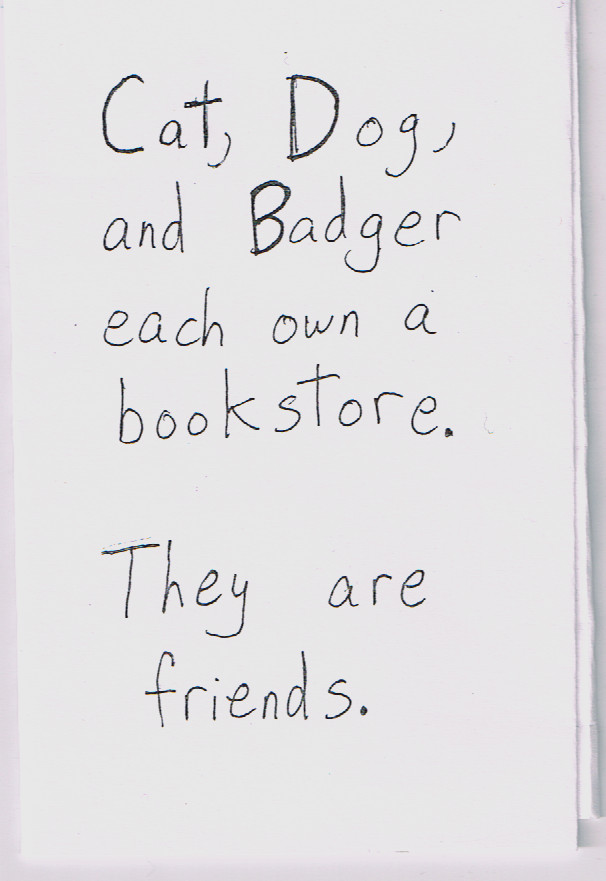 Cat, Dog,
and Badger
each own a
bookstore.
They are
friends.